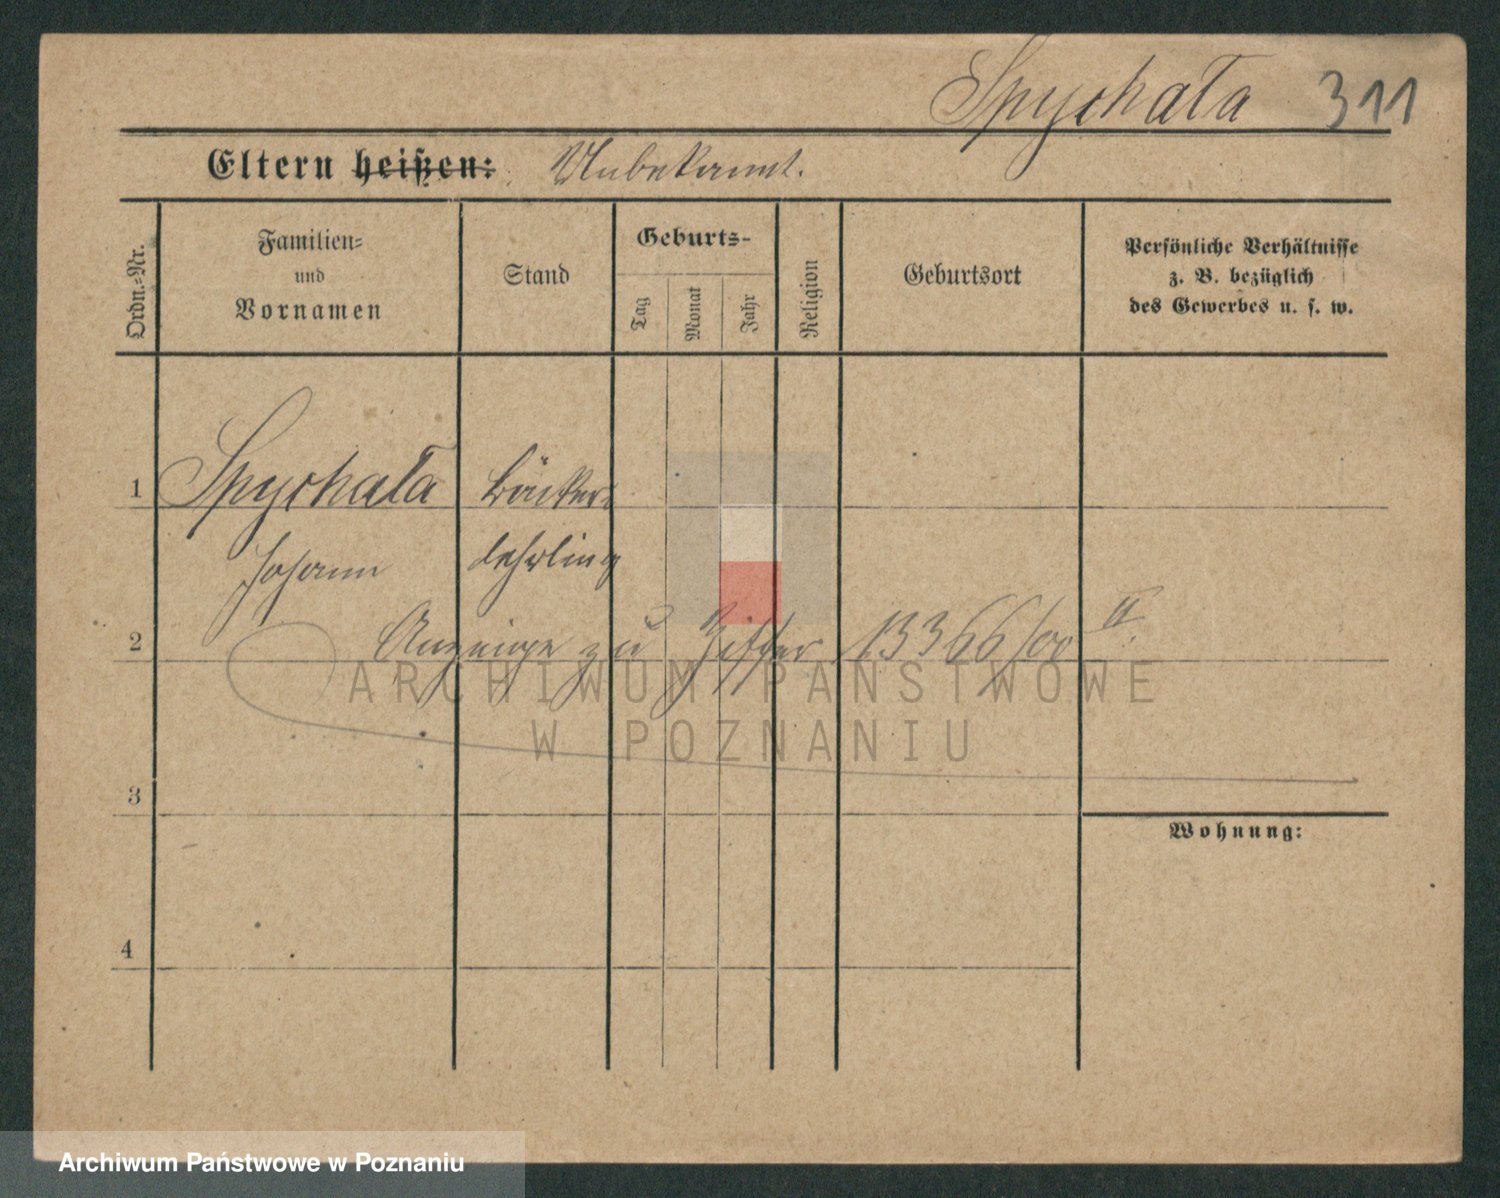 Spychała 311
Eltern heißen: Unbekannt.
Ordn.-Nr.
Familien-
und
Vornamen
Stand
Geburts-
Tag
Monat
Jahr
Religion
Geburtsort
Persönliche Verhältnisse
z. B. bezüglich
des Gewerbes u. s. w.
1 Spychała Bäcker-
Johann lehrling
2 Anzeige zu Ziffer 13366/00 II.
3
Wohnung:
4
ARCHIWUM PAŃSTWOWE
W POZNANIU
Archiwum Państwowe w Poznaniu